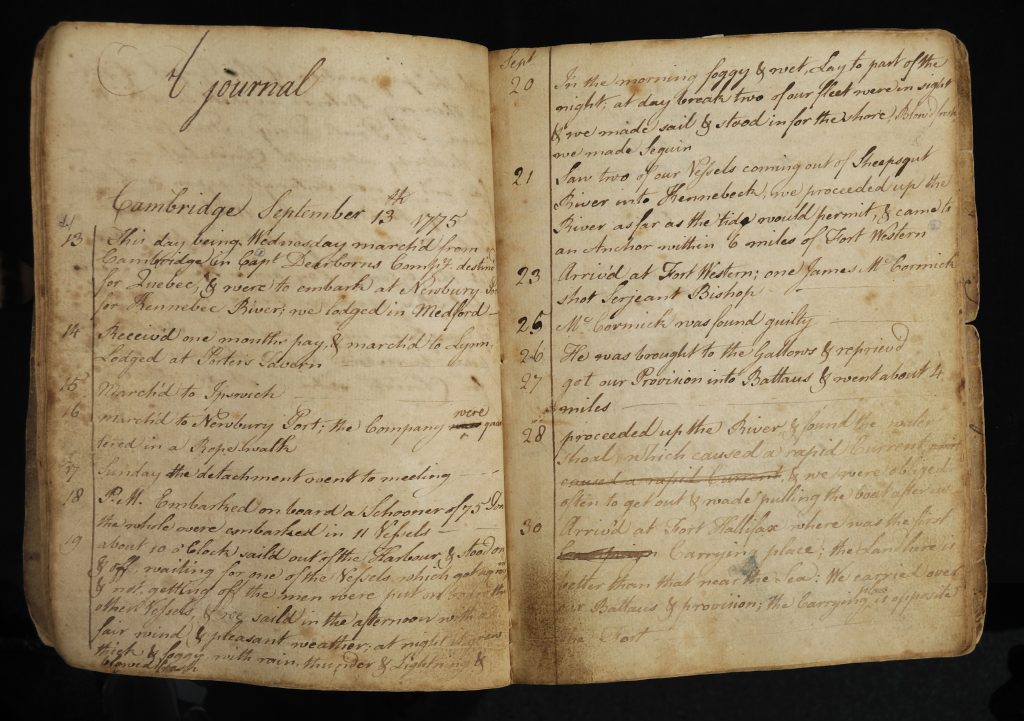 A journal
Cambridge September 13th 1775
13 This day being Wednesday march'd from
Cambridge in Capt Dearborns Compy. destin'd
for Quebec, & were to embark at Newbury
for Kennebec River; we lodged in Medford
14 Receiv'd one months pay, & march'd to Lynn,
Lodged at Porters Tavern
15 March'd to Ipswich
16 march'd to Newbury Port; the Company were
tered in a Rope walk
17 Sunday the detachment went to meeting
18 P.M. Embarked on board a Schooner of 75 Ton
the whole were embarked in 11 Vessels
19 about 10 o'Clock saild out of the Harbour, & stood on
& off. waiting for one of the Vessels, which got
& not getting off the men were put on board the
other Vessels & we saild in the afternoon with a
fair wind, & pleasant weather; at night it grew
thick & foggy with rain, thunder & Lightning &
blowed fresh
Sept
20 In the morning foggy & wet, Lay to part of the
night; at day break two of our fleet were in sight
& we made sail & stood in for the shore, Blow'd fresh
we made Seguin
21 Saw two of our Vessels coming out of Sheepsgut
River into Kennebeck, we proceeded up the
River as far as the tide would permit, & came to
an Anchor within 6 miles of Fort Western
23 Arriv'd at Fort Western; one James McCormick
shot Serjeant Bishop
25 McCormick was found guilty
26 He was brought to the Gallows & repriev'd
27 got our Provision into Battaus, & went about 4
miles
28 proceeded up the River, & found the water
shoal which caused a rapid Current
caused a rapid Current, & we were obliged
often to get out & wade pulling the boat after us
30 Arriv'd at Fort Hallifax where was the first
Carrying place; the Land here is
better than that near the Sea: We carried over
our Battaus & provision; the Carrying place is opposite
the Fort